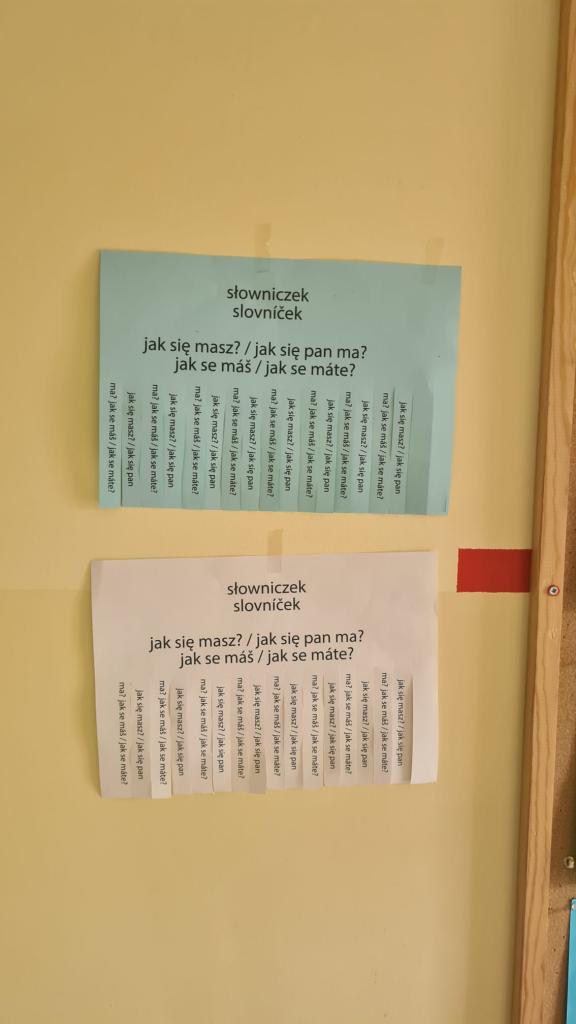 słowniczek
slovníček
jak się masz? / jak się pan ma?
jak se máš / jak se máte?
jak się masz? / jak się pan
ma? jak se máš / jak se máte?
jak się masz? / jak się pan
ma? jak se máš / jak se máte?
jak się masz? / jak się pan
ma? jak se máš / jak se máte?
jak się masz? / jak się pan
ma? jak se máš / jak se máte?
jak się masz? / jak się pan
ma? jak se máš / jak se máte?
jak się masz? / jak się pan
ma? jak se máš / jak se máte?
jak się masz? / jak się pan
ma? jak se máš / jak se máte?
jak się masz? / jak się pan
ma? jak se máš / jak se máte?
słowniczek
slovníček
jak się masz? / jak się pan ma?
jak se máš / jak se máte?
jak się masz? / jak się pan
ma? jak se máš / jak se máte?
jak się masz? / jak się pan
ma? jak se máš / jak se máte?
jak się masz? / jak się pan
ma? jak se máš / jak se máte?
jak się masz? / jak się pan
ma? jak se máš / jak se máte?
jak się masz? / jak się pan
ma? jak se máš / jak se máte?
jak się masz? / jak się pan
ma? jak se máš / jak se máte?
jak się masz? / jak się pan
ma? jak se máš / jak se máte?
jak się masz? / jak się pan
ma? jak se máš / jak se máte?